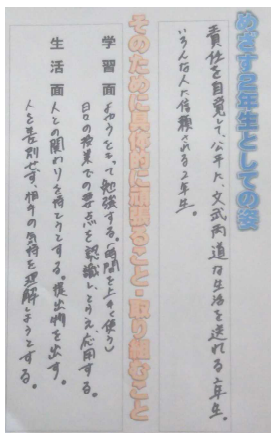 めざす2年生としての姿
責任を自覚して、公平に、文武両道な生活を送れる2年生。
いろんな人に信頼される2年生。
そのために具体的に頑張ること・取り組むこと
学習面 よゆうをもって勉強する。(時間を上手く使う)
日々の授業での要点を認識し、とらえ、応用する。
生活面 人との関わりを持とうとする。提出物を出す。
人を差別せず、相手の気持を理解しようとする。